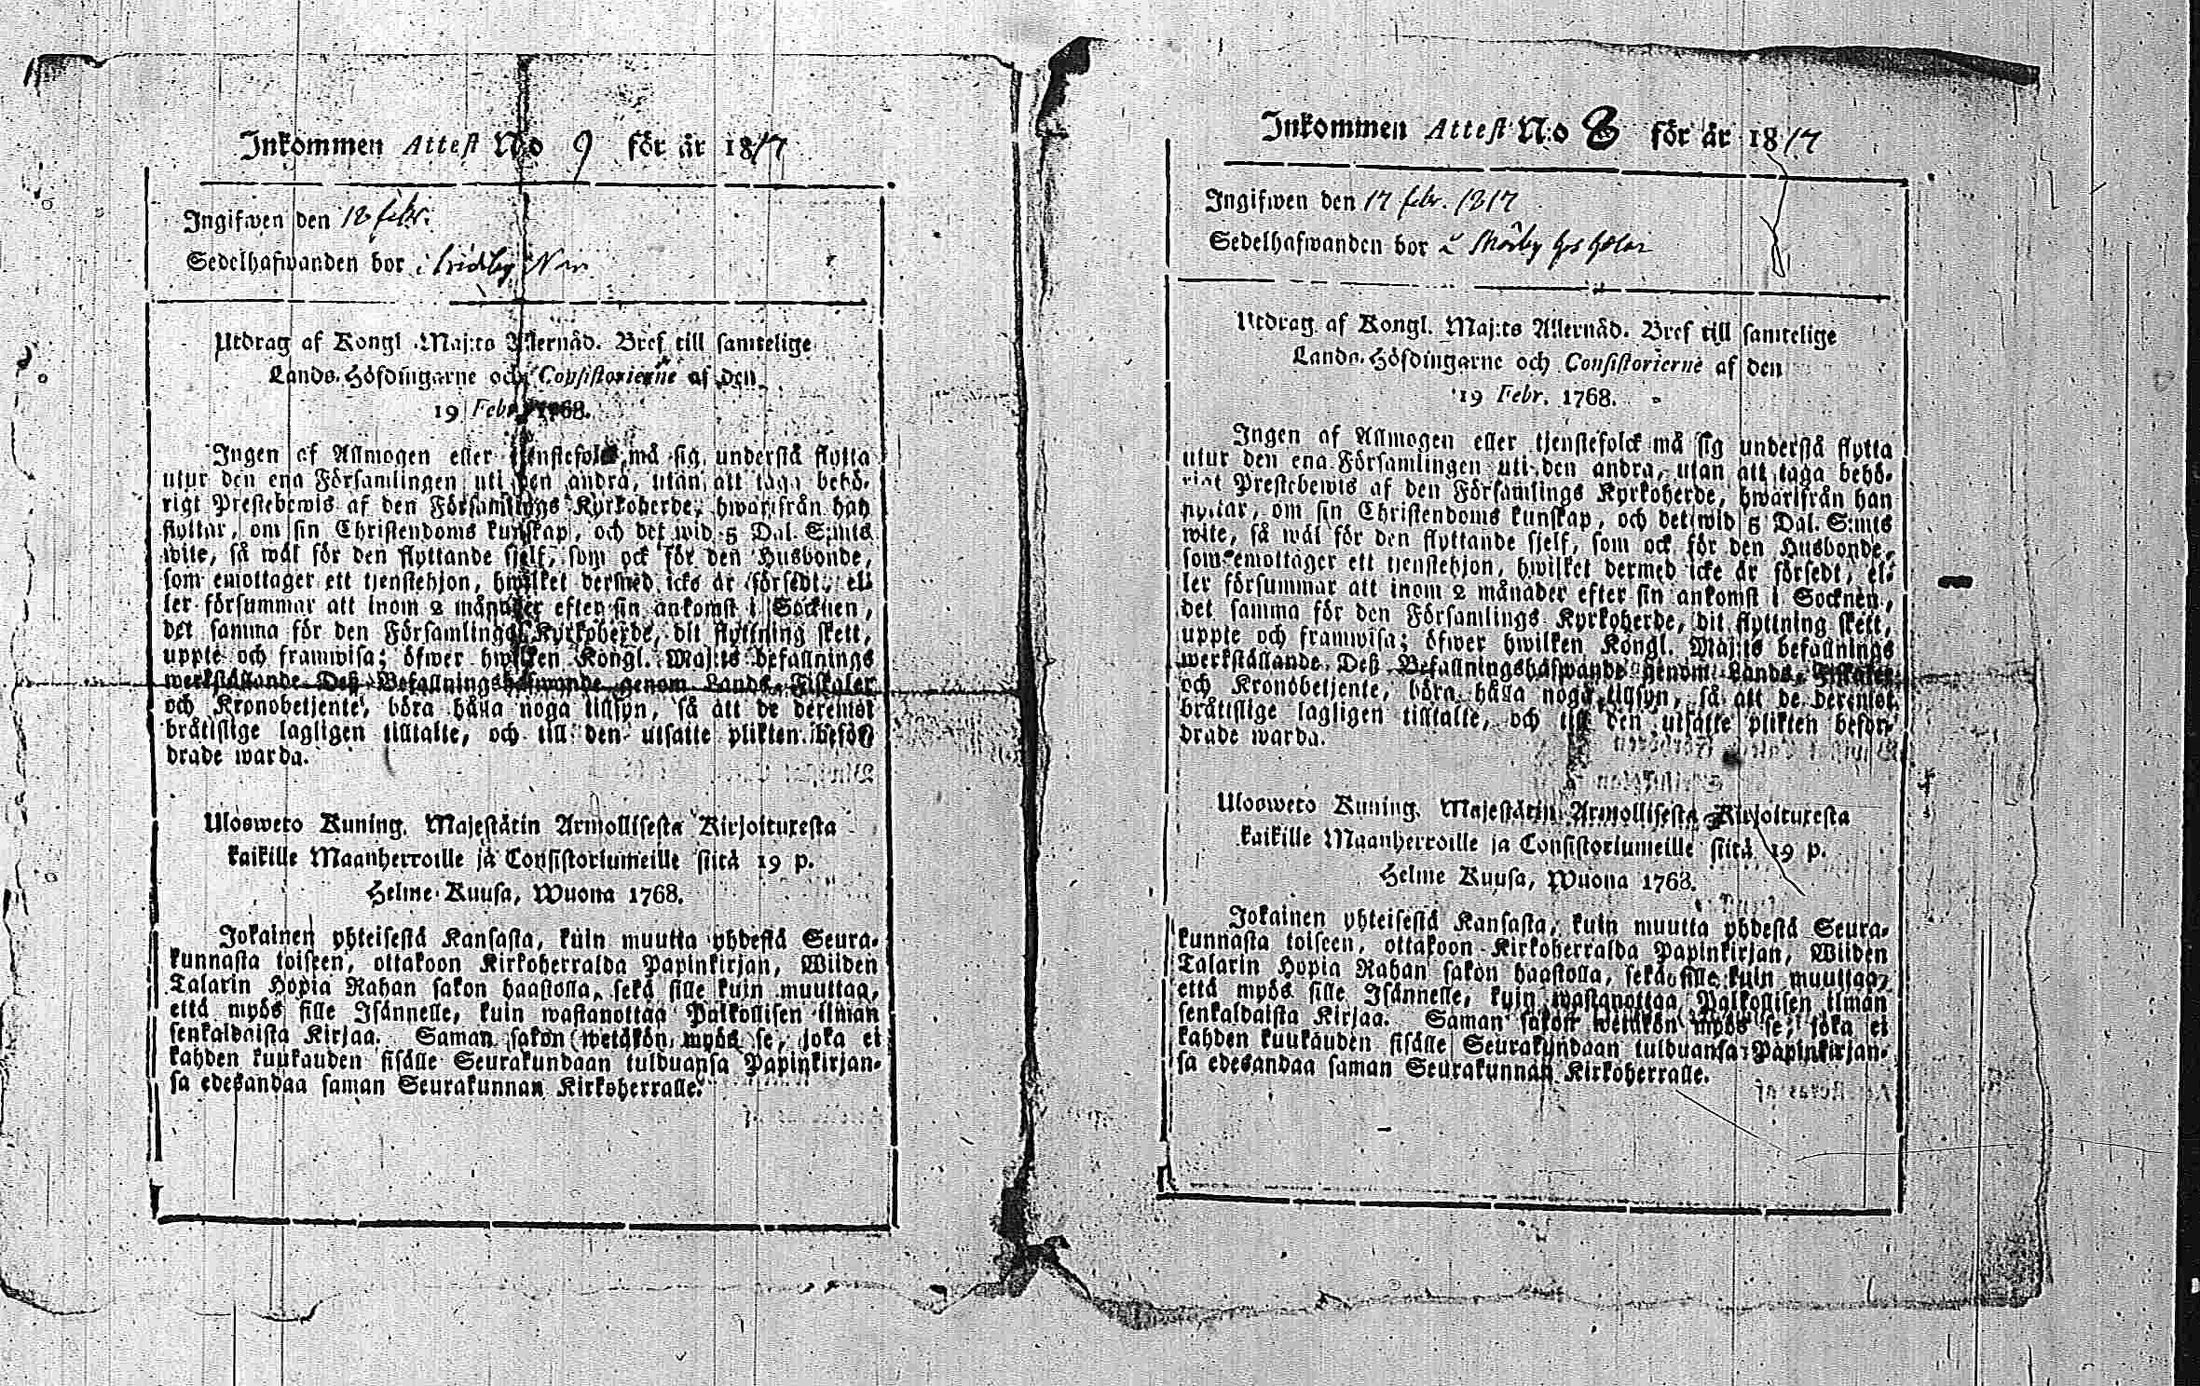 Inkommen Attest No 9 för år 1817
Ingifwen den 18 febr.
Sedelhafwanden bor i
Utdrag af Kongl. Maj:ts Allernåd. Bref till samtelige
Lands-Höfdingarne och Consistorierne af den
19 Febr. 1768.
Ingen af Allmogen eller tjenstefolck må sig understå flytta
utur den ena Församlingen uti den andra, utan att taga behö-
rigt Prestebewis af den Församlings Kyrkoherde, hwarifrån han
flyttar, om sin Christendoms kunskap, och det wid 5 Dal. S:mts
wite, så wäl för den flyttande sjelf, som ock för den Husbonde,
som emottager ett tjenstehjon, hwilket dermed icke är försedt, el-
ler försummar att inom 2 månader efter sin ankomst i Socknen,
det samma för den Församlings Kyrkoherde, dit flyttning skett,
uppte och framwisa; öfwer hwilken Kongl. Maj:ts befallnings
werkställande Deß Befallningshafwande genom Lands-Fiskaler
och Kronobetjente, böra hålla noga tillsyn, så att de deremot
bråttslige lagligen tilltalte, och till den utsatte plikten beför-
drade warda.
Ulosweto Kuning. Majestätin Armollisesta Kirjoituxesta
kaikille Maanherroille ja Consistoriumeille siitä 19 p.
Helme-Kuusa, Wuona 1768.
Jokainen yhteisestä Kansasta, kuin muutta yhdestä Seura-
kunnasta toiseen, ottakoon Kirkoherralda Papinkirjan, Wiiden
Talarin Hopia Rahan sakon haastolla, sekä sille kuin muuttaa,
että myös sille Isännelle, kuin wastanottaa Palkollisen ilman
senkaldaista Kirjaa. Saman sakon wetäkön myös se, joka ei
kahden kuukauden sisälle Seurakundaan tulduansa Papinkirjan-
sa edesandaa saman Seurakunnan Kirkoherralle.
Inkommen Attest N:o 8 för år 1817
Ingifwen den 17 febr. 1817
Sedelhafwanden bor i
Utdrag af Kongl. Maj:ts Allernåd. Bref till samtelige
Lands-Höfdingarne och Consistorierne af den
19 Febr. 1768.
Ingen af Allmogen eller tjenstefolck må sig understå flytta
utur den ena Församlingen uti den andra, utan att taga behö-
rigt Prestebewis af den Församlings Kyrkoherde, hwarifrån han
flyttar, om sin Christendoms kunskap, och det wid 5 Dal. S:mts
wite, så wäl för den flyttande sjelf, som ock för den Husbonde,
som emottager ett tjenstehjon, hwilket dermed icke är försedt, el-
ler försummar att inom 2 månader efter sin ankomst i Socknen,
det samma för den Församlings Kyrkoherde, dit flyttning skett,
uppte och framwisa; öfwer hwilken Kongl. Maj:ts befallnings
werkställande Deß Befallningshafwande genom Lands-Fiskaler
och Kronobetjente, böra hålla noga tillsyn, så att de deremot
bråttslige lagligen tilltalte, och till den utsatte plikten beför-
drade warda.
Ulosweto Kuning. Majestätin Armollisesta Kirjoituxesta
kaikille Maanherroille ja Consistoriumeille siitä 19 p.
Helme Kuusa, Wuona 1768.
Jokainen yhteisestä Kansasta, kuin muutta yhdestä Seura-
kunnasta toiseen, ottakoon Kirkoherralda Papinkirjan, Wiiden
Talarin Hopia Rahan sakon haastolla, sekä sille kuin muuttaa,
että myös sille Isännelle, kuin wastanottaa Palkollisen ilman
senkaldaista Kirjaa. Saman sakon wetäkön myös se, joka ei
kahden kuukauden sisälle Seurakundaan tulduansa Papinkirjan-
sa edesandaa saman Seurakunnan Kirkoherralle.